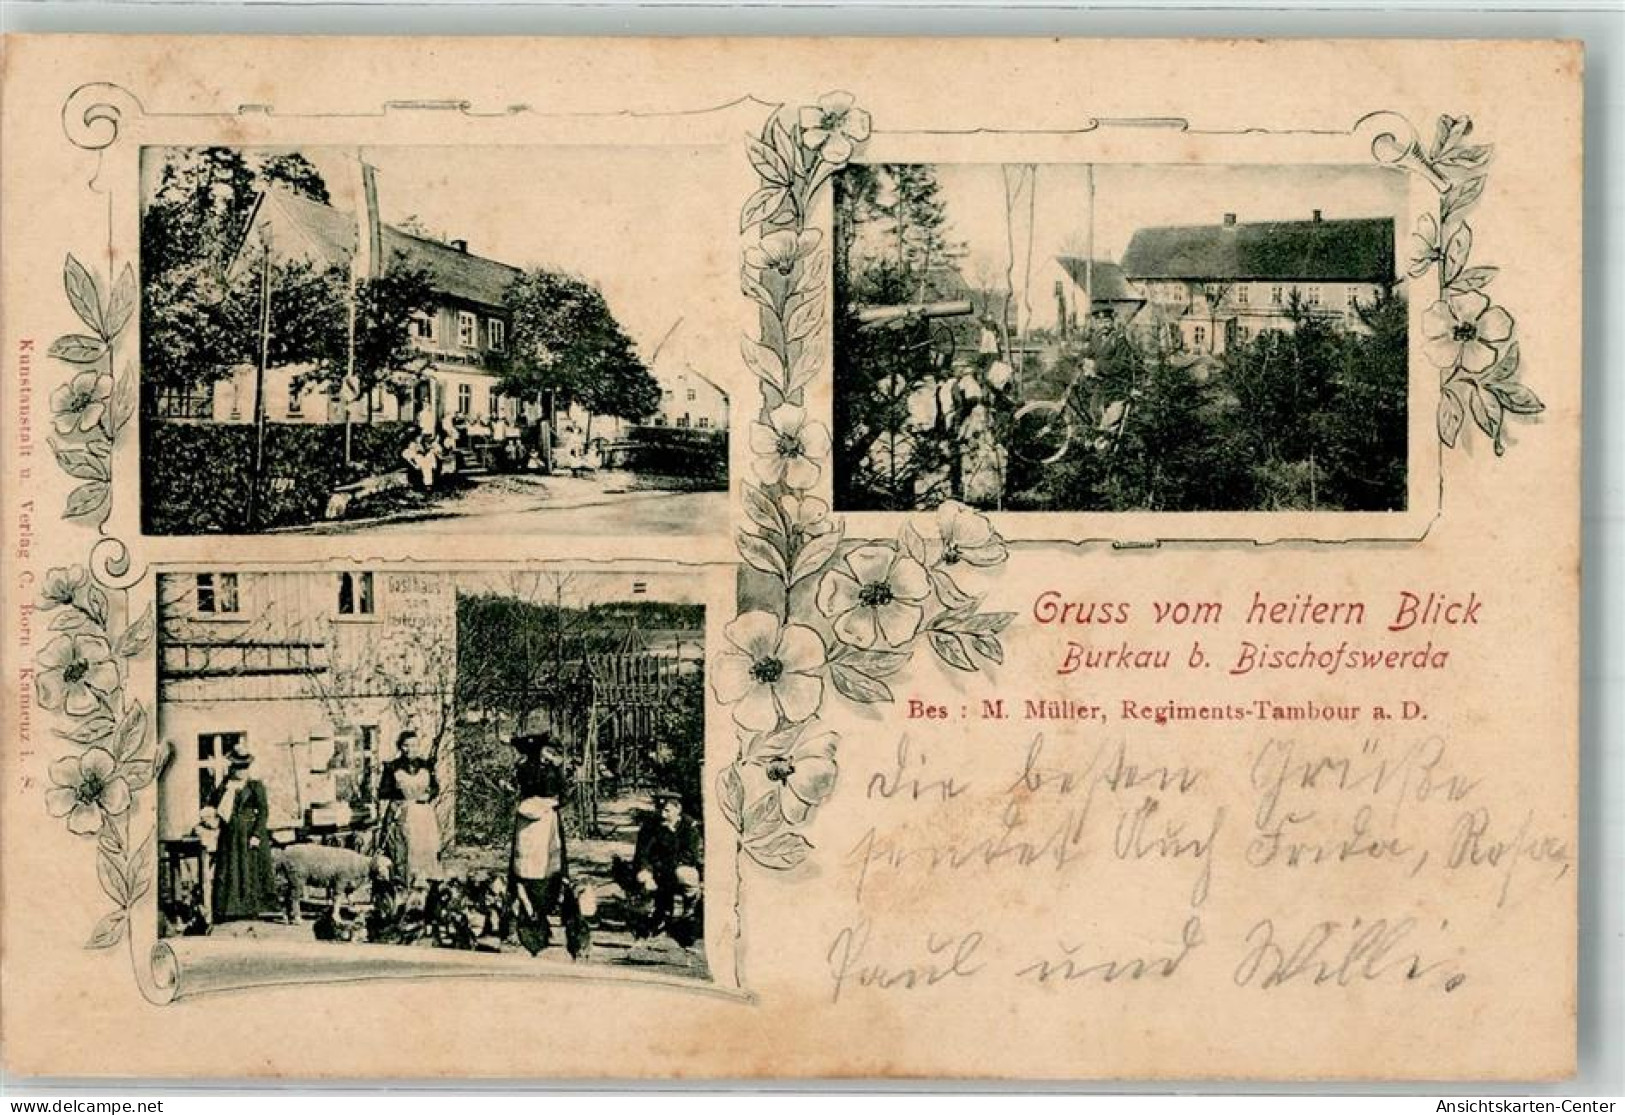 Gasthaus
zum
Kunstanstalt u. Verlag C. Born Kamenz i. S.
Gruss vom heitern Blick
Burkau b. Bischofswerda
Bes : M. Müller, Regiments-Tambour a. D.
Die besten Grüße
sendet Auch Frida, Rosa,
Paul und Willi.
delcampe.net
Ansichtskarten-Center